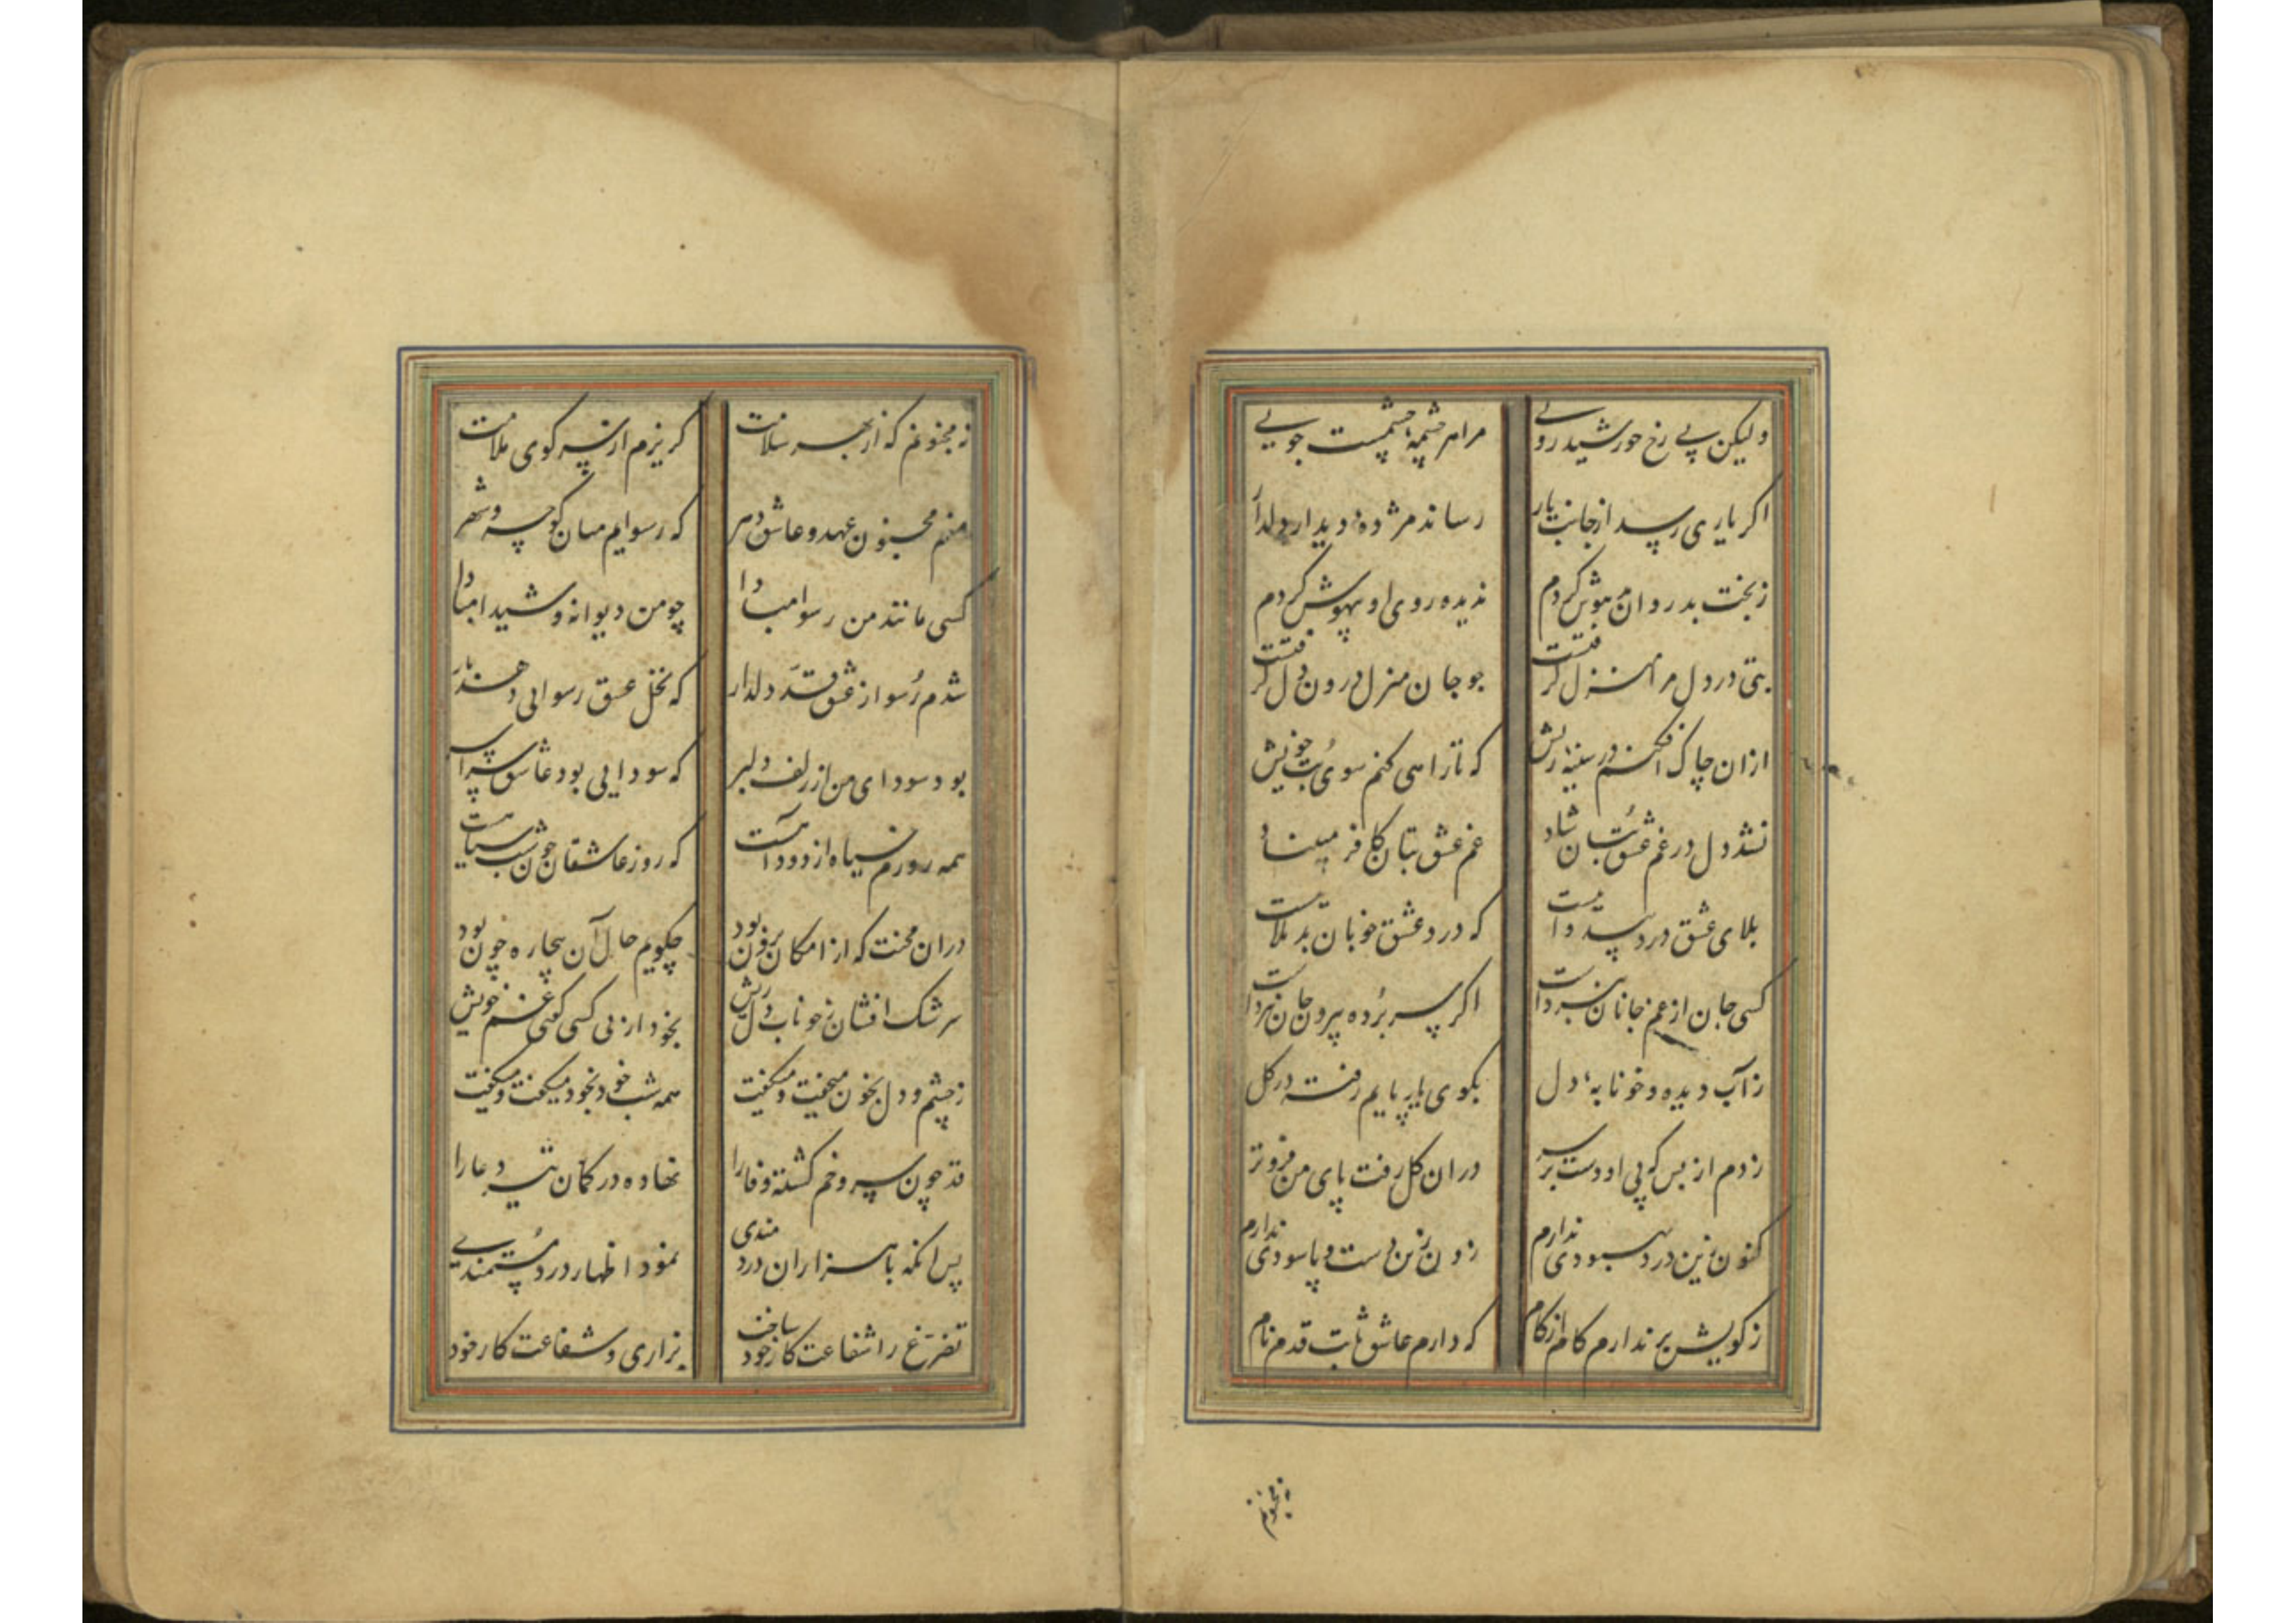 ولیکن بی رخ خورشید رویی مرا هر چشمهٔ چشمست جویی
اکر یاری رسد از جانب یار رساند مژدهٔ دیدار دلدار
ز بخت بد روان هوش کردم ندیده روی او بیهوش کردم
بتی در دل مرا منزل کرفتست چو جان منزل درون دل کرفتست
ازان چاک افکنم در سینهٔ ریش که تا راهی کنم سوی بت خویش
نشد دل در غم عشق بتان شاد غم عشق بتان کافر مبیناد
بلای عشق درد بی دواییست که درد عشق خوبان بد بلاییست
کسی جان از غم جانان نبردست اکر پی برده بیرون جان نبردست
ز آب دیده و خونابهٔ دل بکوی یار پایم رفته در کل
زدم از بس که بی او دست بر سر دران کل رفت پای من فروتر
کنون زین درد بهبودی ندارم زدن زین دست و پا سودی ندارم
ز کویش بر ندارم کام از کام که دارم عاشق ثابت قدم نام
نه مجنونم که از بهر سلامت کریزم از سر کوی ملامت
منم مجنون عهد و عاشق دهر که رسوایم میان کوچه و شهر
کسی مانند من رسوا مبادا چو من دیوانه و شیدا مبادا
شدم رسوا ز عشق قد دلدار که نخل عشق رسوایی دهد بار
بود سودای من از زلف دلبر که سودایی بود عاشق سراسر
همه روزم سیاه از دود آهست که روز عاشقان چون شب سیاهست
دران محنت که از امکان برون بود چکویم حال آن بیچاره چون بود
سرشک افشان ز خوناب دل ریش بخود از بی کسی کفتی غم خویش
ز چشم و دل بخون میخفت و میکفت همه شب خود بخود میکفت و میکفت
قد چون سرو خم کشته وفا را نهاده در کمان تیر دعا را
پس انکه با هزاران دردمندی نمود اظهار درد مستمندی
تضرع را شفاعت کار خود ساخت بزاری و شفاعت کار خود
نه مجنونم